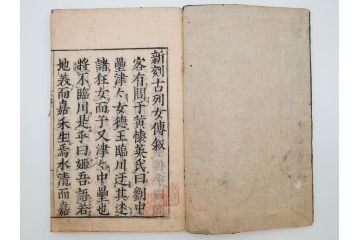 新刻古列女傳叙
客有問于黃懷英氏曰劉中
壘津々女德王臨川迂其述
諸狂女而子又津々中壘也
將不臨川是乎曰姬吾語若
地義而嘉禾生焉水清而嘉